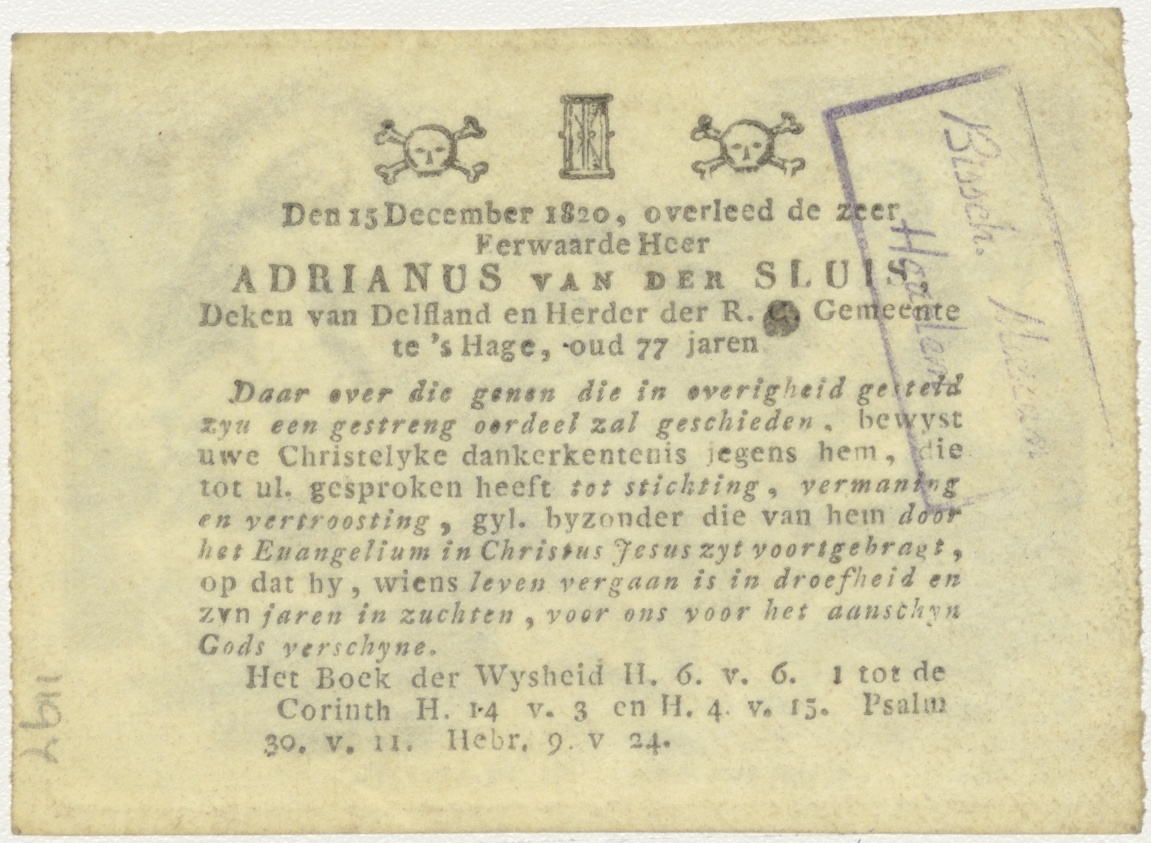 Den 15 December 1820, overleed de zeer
Eerwaarde Heer
ADRIANUS VAN DER SLUIS,
Deken van Delfland en Herder der R. C. Gemeente
te 's Hage, oud 77 jaren
Daar over die genen die in overigheid gesteld
zyn een gestreng oordeel zal geschieden, bewyst
uwe Christelyke dankerkentenis jegens hem, die
tot ul. gesproken heeft tot stichting, vermaning
en vertroosting, gyl. byzonder die van hem door
het Euangelium in Christus Jesus zyt voortgebragt,
op dat hy, wiens leven vergaan is in droefheid en
zyn jaren in zuchten, voor ons voor het aanschyn
Gods verschyne.
Het Boek der Wysheid H. 6. v. 6. 1 tot de
Corinth H. 14 v. 3 en H. 4. v. 15. Psalm
30. v. 11. Hebr. 9. v 24.
Bissch. Museum
Haarlem